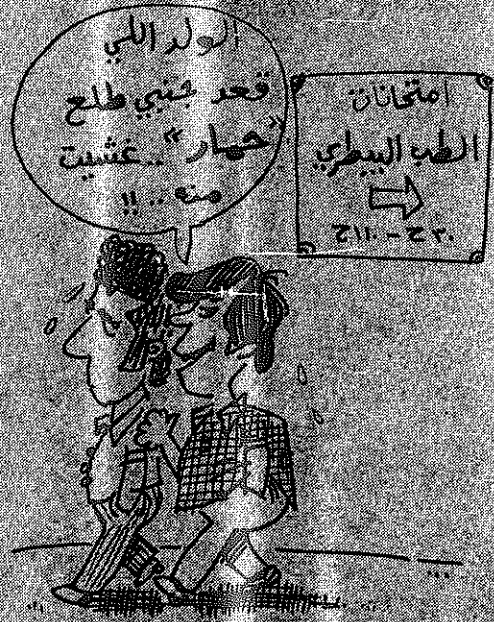 الولد اللي
قعد جنبي طلع
"حمار" .. غشيت
منه .. !!
امتحانات
الطب البيطري